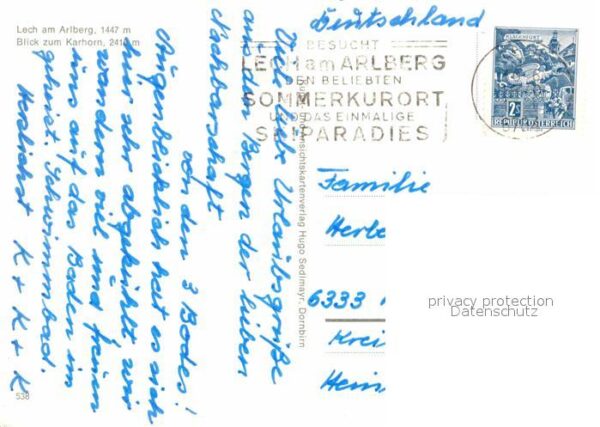 Lech am Arlberg, 1447 m
Blick zum Karhorn, 2416 m
Viele liebe Urlaubsgrüße
aus den Bergen der lieben
Nachbarschaft
von den 3 Bodes!
Augenblicklich hat es sich
hier sehr abgekühlt, wir
wandern viel und freuen
uns auf das Baden im
geheizt. Schwimmbad.
Herzlichst K + K + K
538
Ansichtskartenverlag Hugo Sedlmayr, Dornbirn
Deutschland
BESUCHT
LECH am ARLBERG
DEN BELIEBTEN
SOMMERKURORT
UND DAS EINMALIGE
SKIPARADIES
KLAGENFURT
2S
REPUBLIK ÖSTERREICH
Familie
Herbe
6333
Krei
Hein
privacy protection
Datenschutz